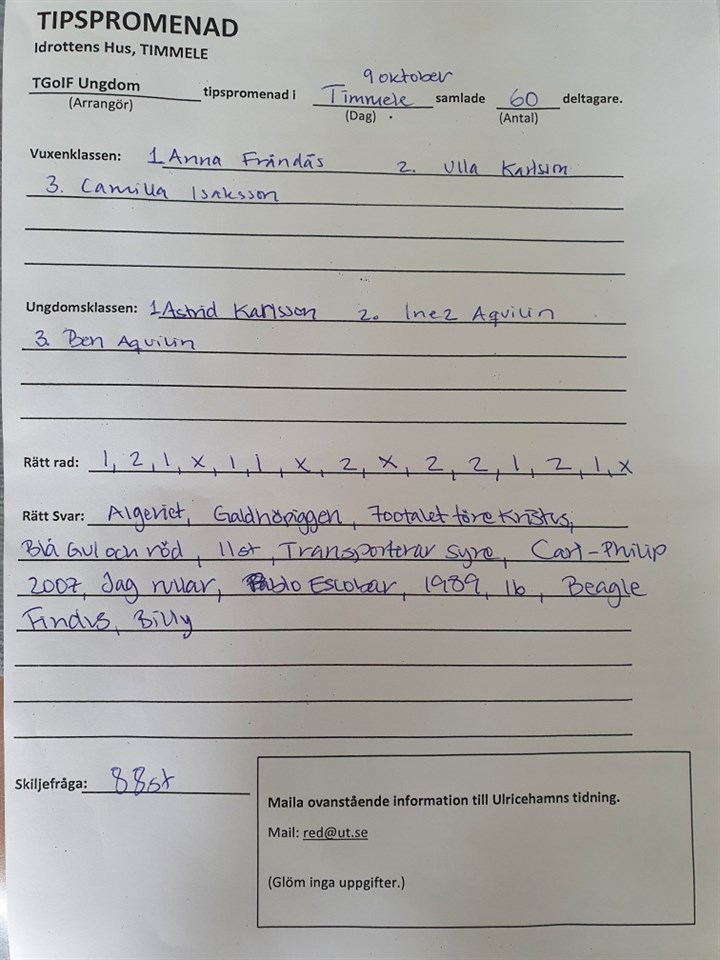 TIPSPROMENAD
Idrottens Hus, TIMMELE
9 oktober
TGoIF Ungdom tipspromenad i Timmele samlade 60 deltagare.
(Arrangör) (Dag) (Antal)
Vuxenklassen: 1 Anna Frändås 2. Ulla Karlsson
3. Camilla Isaksson
Ungdomsklassen: 1 Astrid Karlsson 2. Inez Aquilin
3. Ben Aquilin
Rätt rad: 1, 2, 1, x, 1, 1, x, 2, x, 2, 2, 1, 2, 1, x
Rätt Svar: Algeriet, Galdhöpiggen, 700talet före Kristus,
Blå Gul och röd, 11st, Transporterar syre, Carl-Philip
2007, Jag rullar, Pablo Escobar, 1989, 1b, Beagle
Findus, Billy
Skiljefråga: 88st
Maila ovanstående information till Ulricehamns tidning.
Mail: red@ut.se
(Glöm inga uppgifter.)